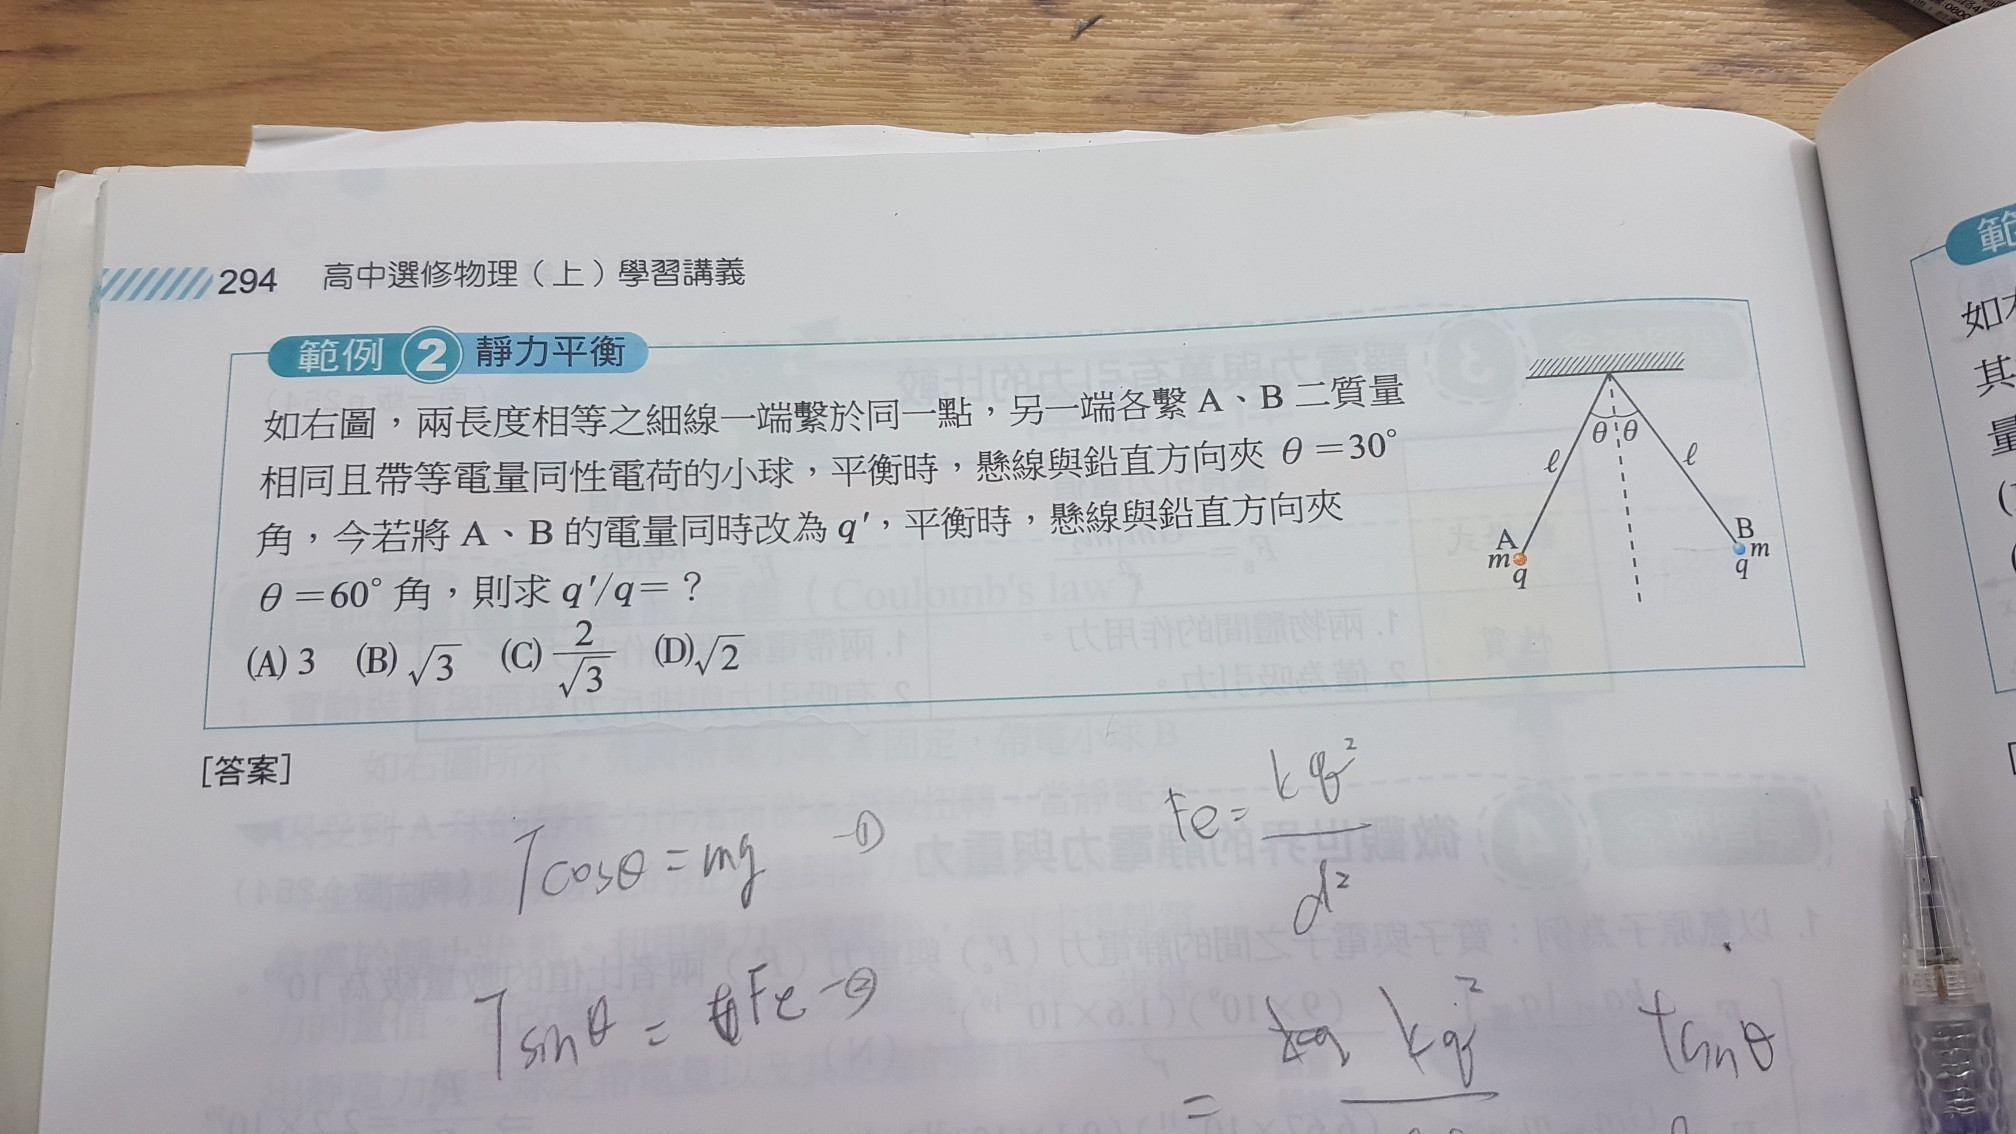 294 高中選修物理（上）學習講義
範例 2 靜力平衡
如右圖，兩長度相等之細線一端繫於同一點，另一端各繫 A、B 二質量
相同且帶等電量同性電荷的小球，平衡時，懸線與鉛直方向夾 θ＝30°
角，今若將 A、B 的電量同時改為 q'，平衡時，懸線與鉛直方向夾
θ＝60° 角，則求 q'/q＝？
(A) 3 (B) √3 (C) 2/√3 (D) √2
θ θ
ℓ ℓ
A B
m m
q q
[答案]
Tcosθ = mg －①
Fe = kq²/d²
Tsinθ = Fe －②
= kq²
tanθ
範
如
其
量